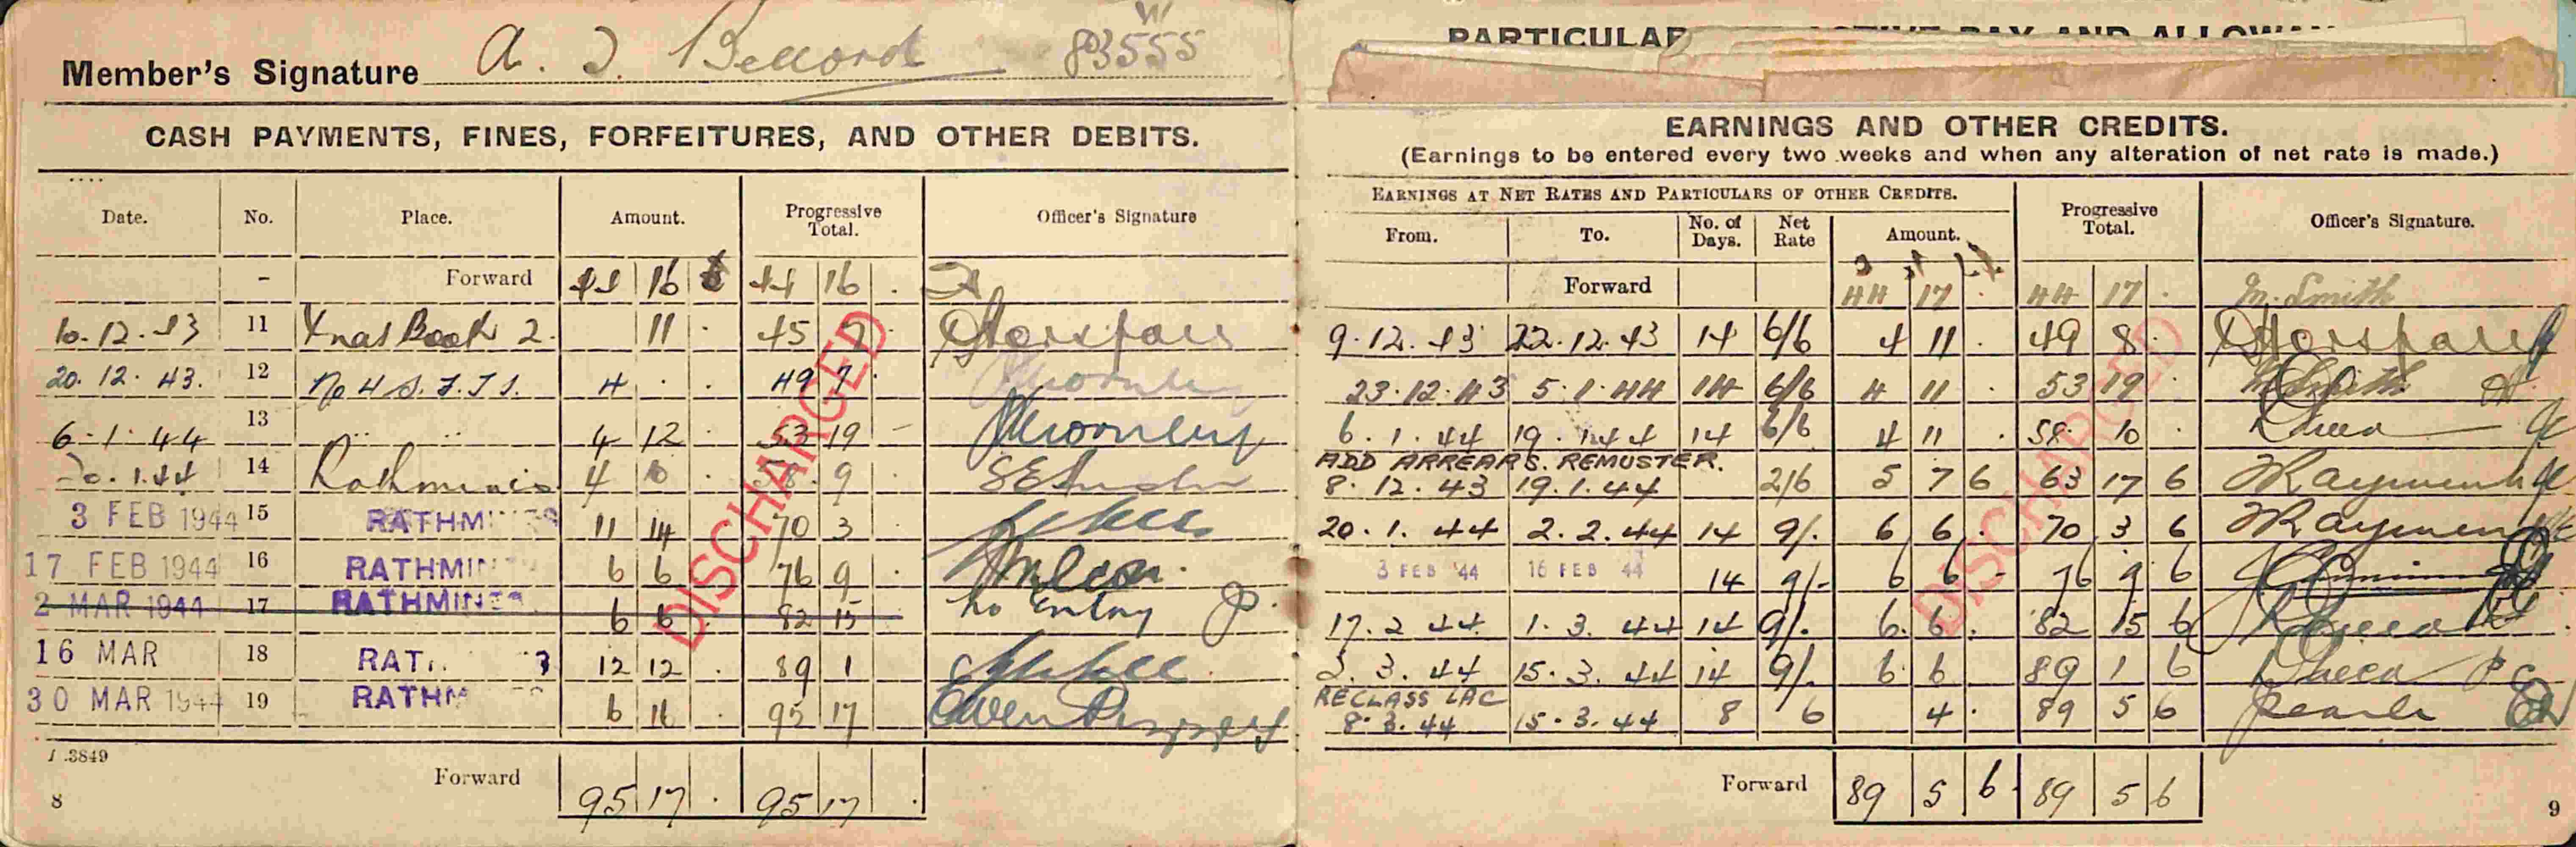 Member's Signature A. J. Bellord W 83555
CASH PAYMENTS, FINES, FORFEITURES, AND OTHER DEBITS.
Date. No. Place. Amount. Progressive Total. Officer's Signature
- Forward 44 16 44 16 .
10.12.43 11 Xmas Book 2. 11 . 45 7 .
20.12.43. 12 No 4 S.F.T.S. 4 . . 49 7 .
6.1.44 13 .. .. 4 12 . 53 19 -
20.1.44 14 Rathmines 4 10 . 58 9 .
3 FEB 1944 15 RATHMINES 11 14 . 70 3 .
17 FEB 1944 16 RATHMIN 6 6 . 76 9 .
2 MAR 1944 17 RATHMINES 6 6 82 15 no Entry
16 MAR 18 RAT 12 12 . 89 1
30 MAR 1944 19 RATHM 6 16 . 95 17
3849
Forward 95 17 . 95 17 .
8
DISCHARGED
PARTICULAR TIVE PAY AND ALLOW
EARNINGS AND OTHER CREDITS.
(Earnings to be entered every two weeks and when any alteration of net rate is made.)
EARNINGS AT NET RATES AND PARTICULARS OF OTHER CREDITS.
From. To. No. of Days. Net Rate Amount. Progressive Total. Officer's Signature.
Forward 44 17 . 44 17 . M. Smith
9.12.43 22.12.43 14 6/6 4 11 . 49 8 .
23.12.43 5.1.44 14 6/6 4 11 . 53 19 . M Smith
6.1.44 19.1.44 14 6/6 4 11 . 58 10 .
ADD ARREARS. REMUSTER.
8.12.43 19.1.44 2/6 5 7 6 63 17 6
20.1.44 2.2.44 14 9/. 6 6 . 70 3 6
3 FEB '44 16 FEB 44 14 9/- 6 6 - 76 9 6
17.2.44. 1.3.44 14 9/. 6. 6 . 82 15 6
2.3.44 15.3.44 14 9/. 6 6 89 1 6
RECLASS LAC
8.3.44 15.3.44 8 6 4 . 89 5 6
Forward 89 5 6. 89 5 6
9
DISCHARGED